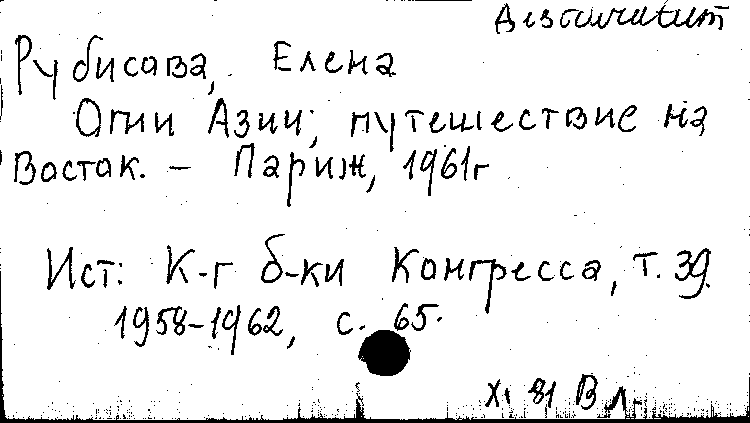 Рубисова, Елена
Огни Азии; путешествие на
Восток. – Париж, 1961г
Ист: К-г б-ки Конгресса, т. 39.
1958-1962, с. 65.
XI 81 В л.